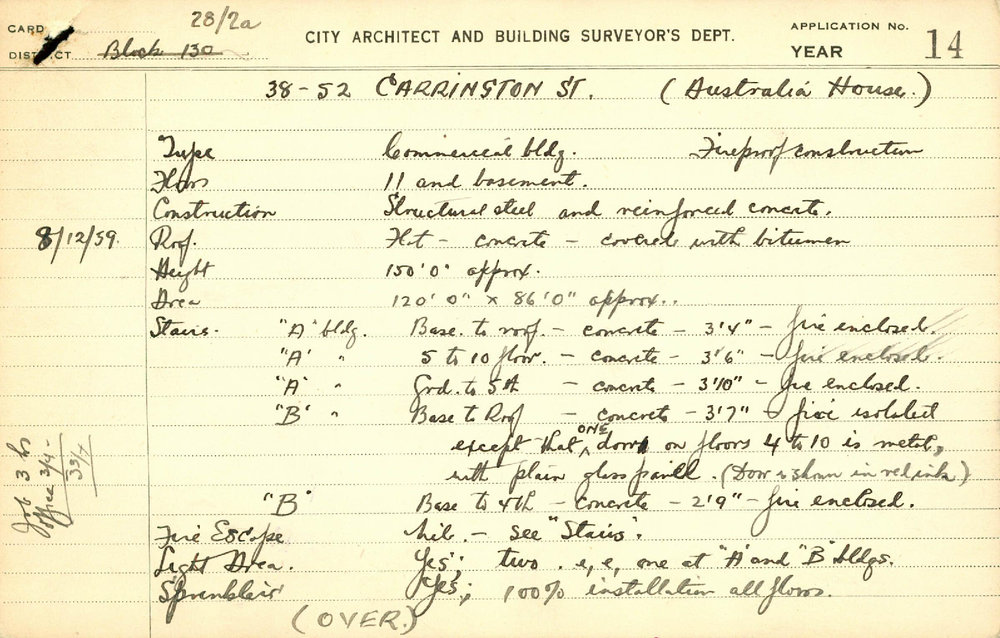 28/2a
CARD
DISTRICT Block 130
CITY ARCHITECT AND BUILDING SURVEYOR'S DEPT.
APPLICATION No.
YEAR 14
38-52 CARRINGTON ST. (Australia House.)
Type Commercial bldg. Fireproof construction
Floors 11 and basement.
Construction Structural steel and reinforced concrete.
8/12/59. Roof. Flat - concrete - covered with bitumen
Height 150'0" approx.
Area 120'0" x 86'0" approx..
Stairs. "A" bldg. Base. to roof. - concrete - 3'4" - fire enclosed.
"A" " 5 to 10 floor. - concrete - 3'6" - fire enclosed.
"A" " Grd. to 5th - concrete - 3'10" - fire enclosed.
"B" " Base to Roof - concrete - 3'7" - fire isolated
except that ONE door on floors 4 to 10 is metal,
with plain glass panel. (Door is shown in red ink)
"B" Base to 4th - concrete - 2'9" - fire enclosed.
Fire Escape Nil. - see "Stairs".
Light Area. Yes; two. i.e. one at "A" and "B" bldgs.
Sprinklers Yes; 100% installation all floors.
(OVER.)
Job 3 hs
office 3/4 -
33/4